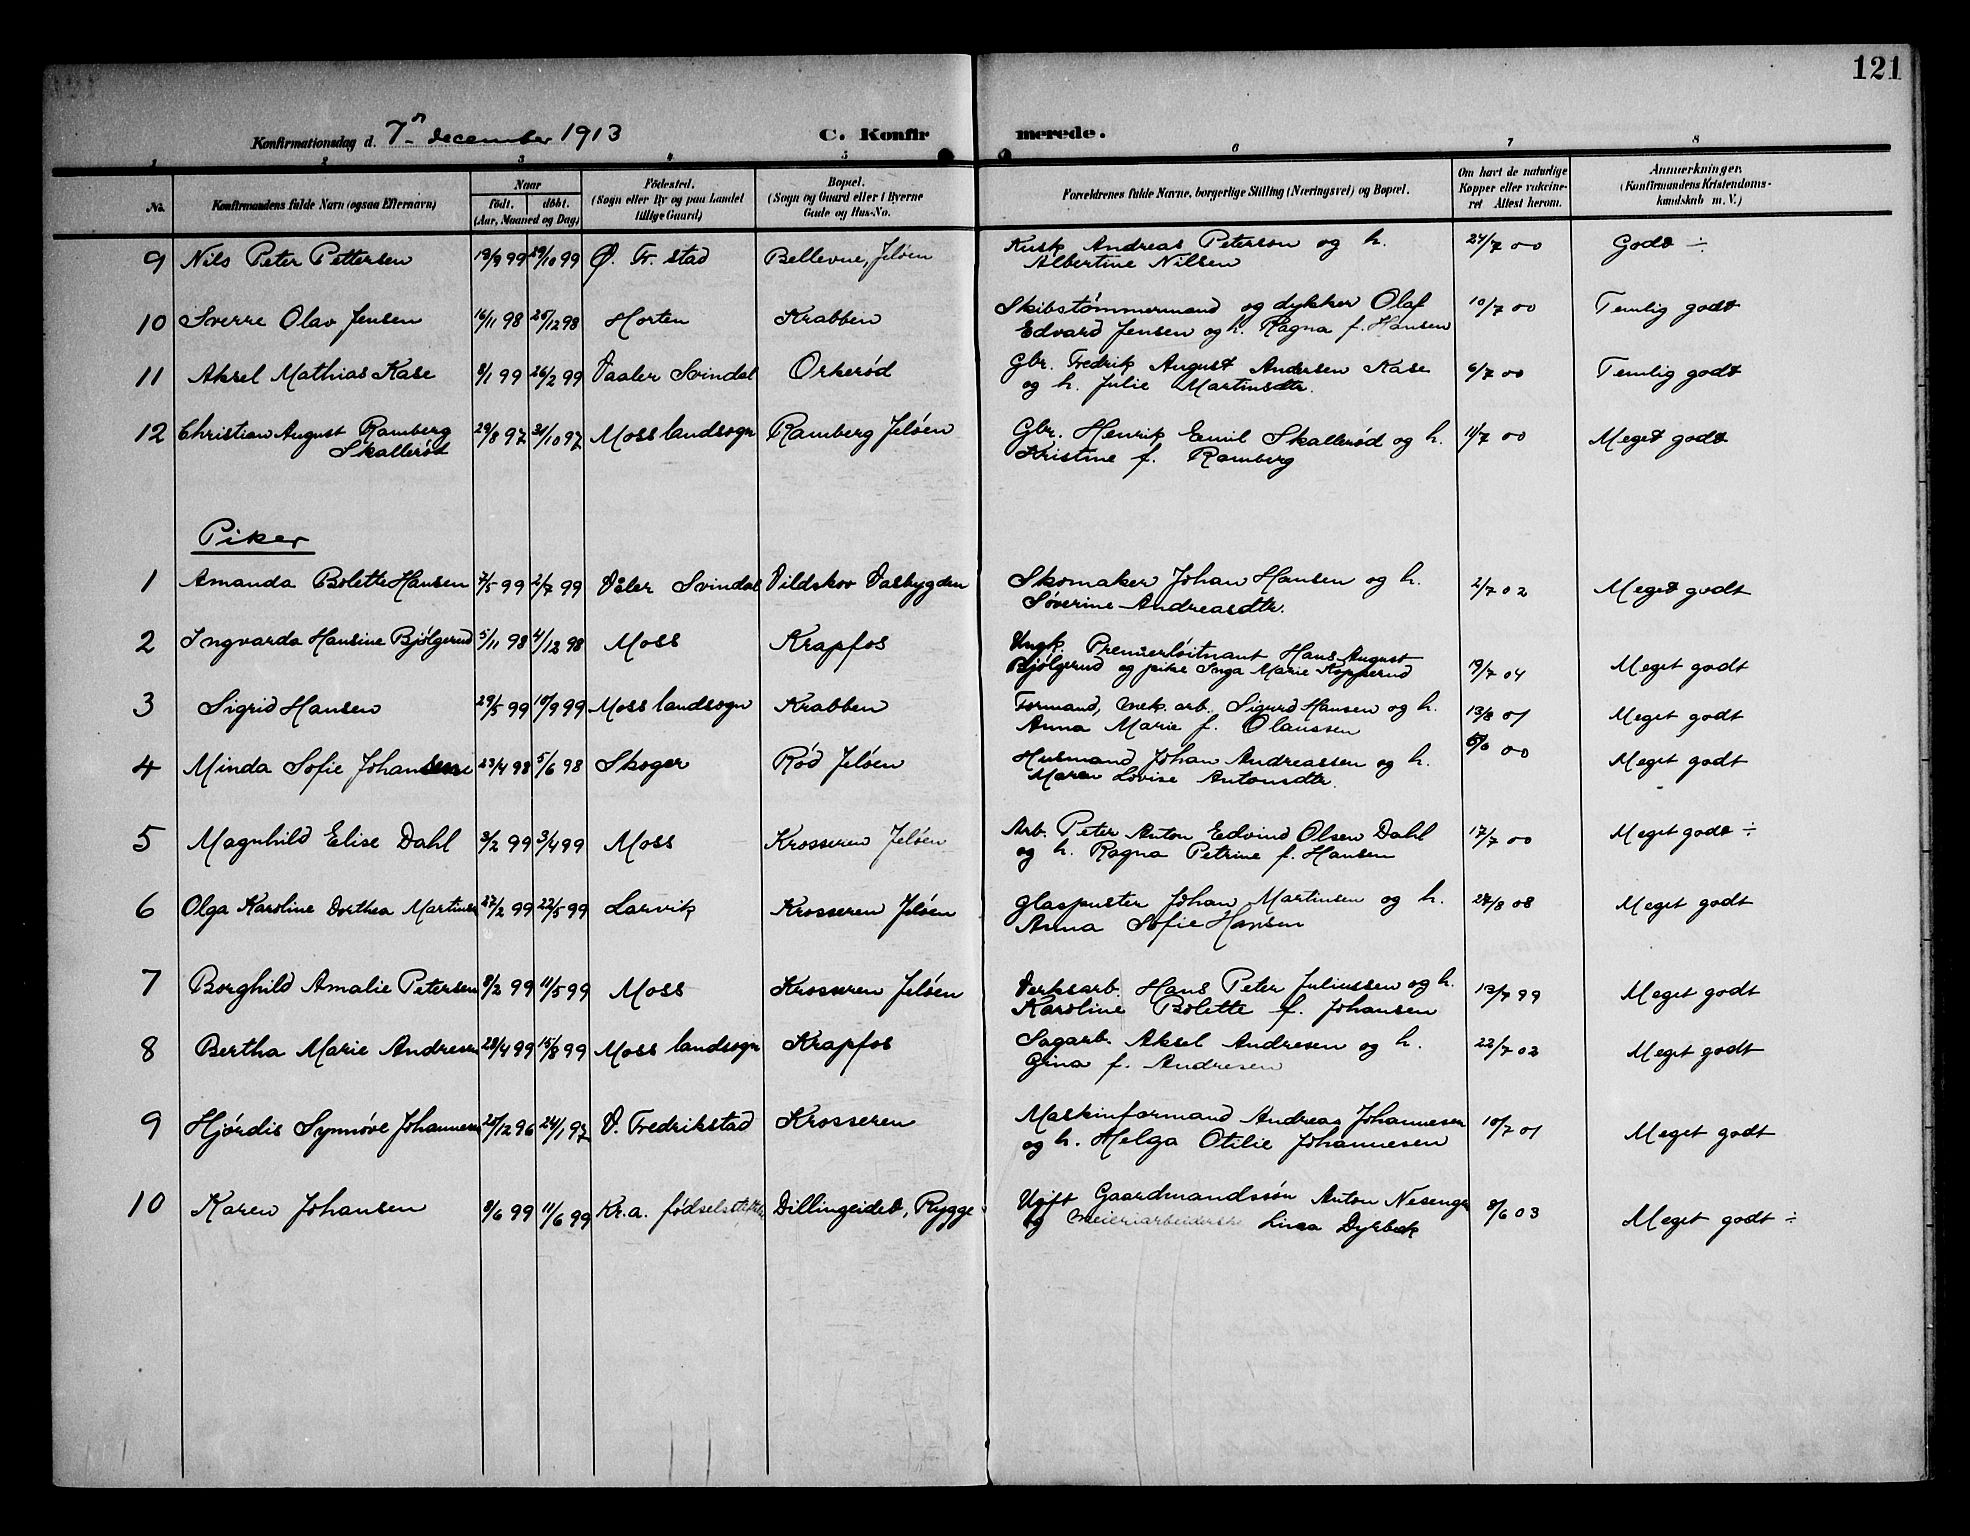 121
Konfirmationsdag d. 7de december 1913 C. Konfirmerede.
1 2 3 4 5 6 7 8
No. Konfirmandens fulde Navn (ogsaa Efternavn) Naar født. døbt. (Aar, Maaned og Dag) Fødested. (Sogn eller By og paa Landet tillige Gaard) Bopæl. (Sogn og Gaard eller i Byerne Gade og Hus-No. Forældrenes fulde Navne, borgerlige Stilling (Næringsvei) og Bopæl. Om havt de naturlige Kopper eller vaccineret Attest herom. Anmerkninger. (Konfirmandens Kristendomskundskab m. V.)
9 Nils Peter Pettersen 13/9 99 29/10 99 Ø. Fr. stad Bellevue, Jeløen Kusk Andreas Peterson og h. 24/7 00 Godt ÷
Albertine Nilsen
10 Sverre Olav Jensen 16/11 98 26/12 98 Horten Krabben Skibstømmermand og dykker Olaf 10/7 00 Temlig godt
Edvard Jensen og h. Ragna f. Hansen
11 Aksel Mathias Kase 8/1 99 26/2 99 Vaaler Svindal Orkerød Gbr. Fredrik August Andersen Kase 6/7 00 Temlig godt
og h. Julie Martinsdtr.
12 Christian August Ramberg 29/8 97 31/10 97 Moss landsogn Ramberg Jeløen Gbr. Henrik Emil Skallerød og h. 11/7 00 Meget godt
Skallerød Kristine f. Ramberg
Piker
1 Amanda Bolette Hansen 7/5 99 2/7 99 Våler Svindal Vildskov Vasbygden Skomaker Johan Hansen og h. 2/7 02 Meget godt
Søverine Andreasdtr.
2 Ingvarda Hansine Bjølgerud 5/11 98 4/12 98 Moss Krapfos Ungk. Premierløitnant Hans August
Bjølgerud og pike Inga Marie Kopperud 19/7 04 Meget godt
3 Sigrid Hansen 29/5 99 10/9 99 Moss landsogn Krabben Formand, mek. arb. Sigurd Hansen og h. 13/8 01 Meget godt
Anna Marie f. Olaussen
4 Minda Sofie Johansen 23/4 98 5/6 98 Skoger Rød Jeløen Husmand Johan Andreassen og h. 00 Meget godt
Maren Lovise Antonsdtr.
5 Magnhild Elise Dahl 3/2 99 3/4 99 Moss Krosseren Jeløen Arb. Peter Anton Edvind Olsen Dahl 17/7 00 Meget godt ÷
og h. Ragna Petrine f. Hansen
6 Olga Karoline Dorthea Martinsen 27/2 99 22/5 99 Larvik Krosseren Jeløen Glaspuster Johan Martinsen og h. 27/8 08 Meget godt
Anna Sofie Hansen
7 Borghild Amalie Petersen 8/2 99 11/5 99 Moss Krosseren Jeløen Verksarb. Hans Peter Juliussen og h. 13/7 99 Meget godt
Karoline Bolette f. Johansen
8 Bertha Marie Andresen 28/4 99 15/8 99 Moss landsogn Krapfos Sagarb. Aksel Andresen og h. 22/7 02 Meget godt
Gina f. Andresen
9 Hjørdis Synnøve Johannesen 25/12 96 24/1 97 V. Fredrikstad Krosseren Maskinformand Andreas Johannesen 10/7 01 Meget godt
og h. Helga Otilie Johannesen
10 Karen Johansen 8/6 99 11/6 99 Kr.a. fødselsstiftelse Dillingeidet, Rygge Ugift Gaardmandssøn Anton Nesengr 8/6 03 Meget godt ÷
og meieriarbeiderske Linea Dyrbæk